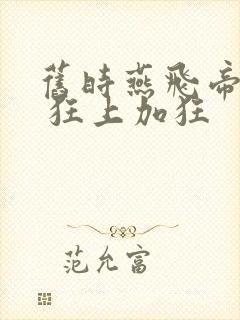 舊時燕飛帝
狂上加狂
范允富